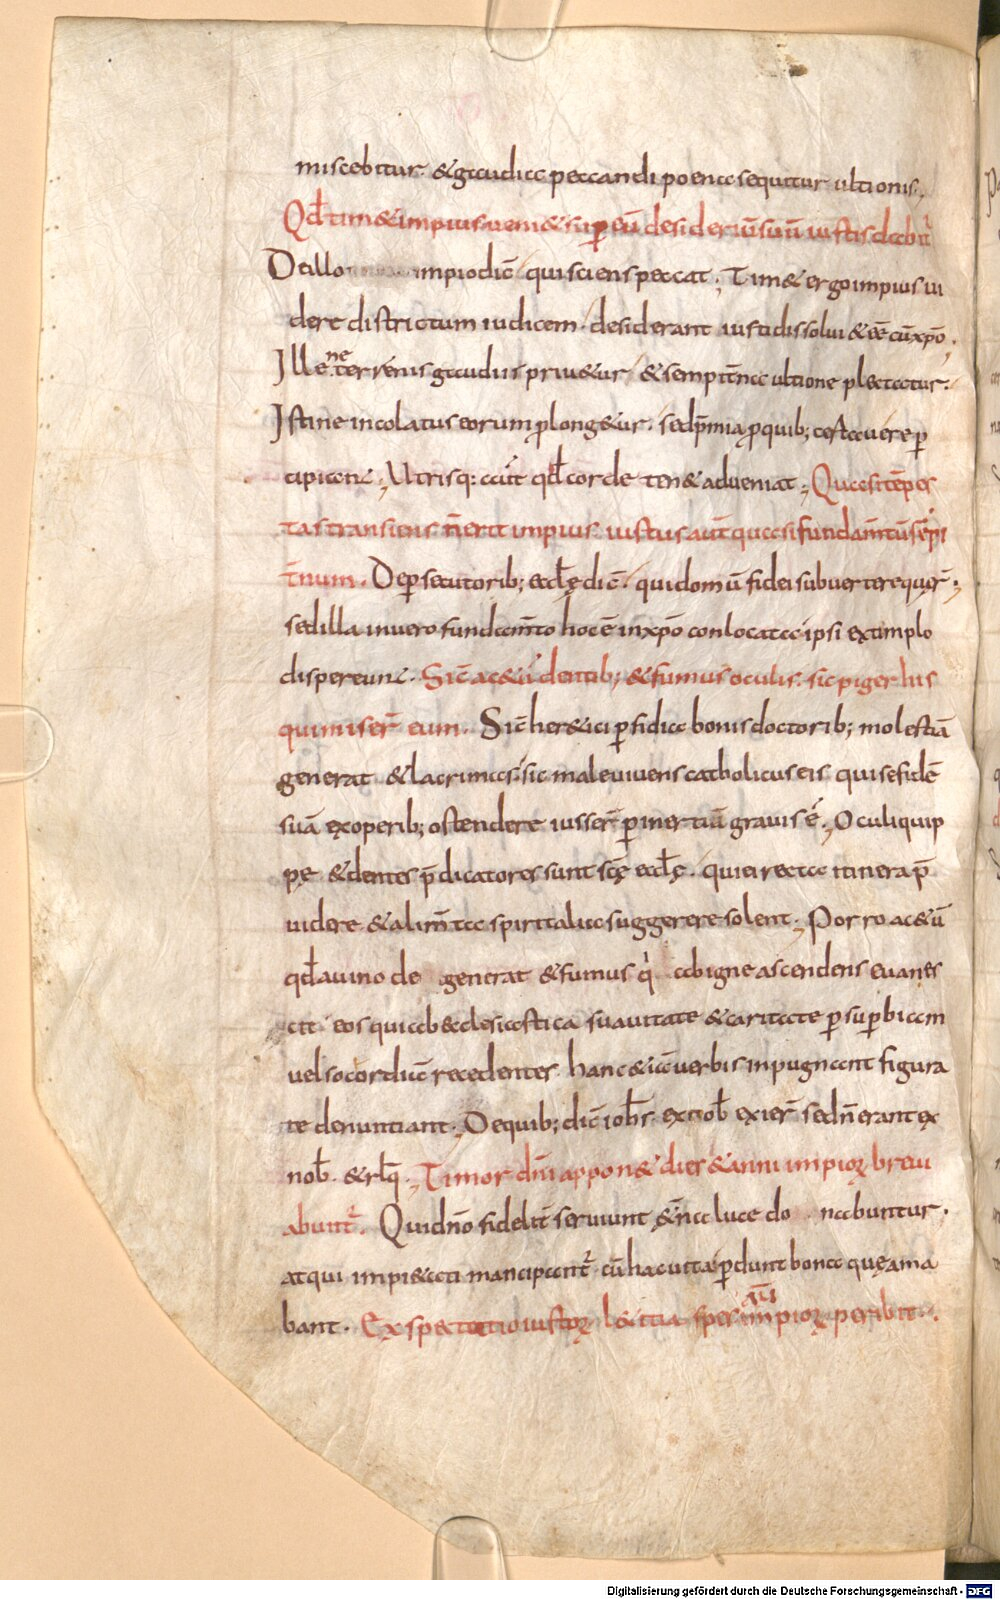 miscebitur. & gaudia peccandi poena sequitur ultionis.
Qd̄ tim& impius ueni& sup̄ eū desideriū suū iustis dabit̄
De illo impio dic̄ qui sciens peccat; Tim& ergo impius ui
dere districtum iudicem. desiderant iusti dissolui & eē cū xp̄o.
Ille ne terrenis gaudiis priu&ur & sempit̄na ultione plectatur.
Isti ne incolatus eorum plong&ur. sed p̄mia p quib; certauere p
cipiant; Utrisq: aut̄ qd̄ corde ten& adueniat; Quasi tēpes
tas transiens n̄ erit impius iustus aut̄ quasi fundam̄tū sēpi
t̄num. De p̄secutorib; eccl̄ę dic̄. qui domū fidei subuertere quęr̄;
sed illa in uero fundam̄to hoc ē in xp̄o conlocata ipsi extimplo
dispereunt. Sic̄ ac&ū dentib; & fumus oculis. sic piger his
qui miser̄ eum. Sic̄ her&ici p̄fidia bonis doctorib; molestiā
generat & lacrimas. sic male uiuens catholicus eis qui se fidē
suā ex operib; ostendere iusser̄ p̄ inertiā grauis ē; Oculi quip
pe & dentes p̄dicatores sunt sc̄ę eccl̄ę. quia recta itinera p̄
uidere & alim̄ta spiritalia suggerere solent; Porro ac&ū
qd̄ a uino de generat & fumus q̄ ab igne ascendens euanes
cit eos qui ab ecclesiastica suauitate & caritate p̄ sup̄biam
uel socordiā recedentes hanc &iā uerbis inpugnant figura
te denuntiant; De quib; dic̄ ioh̄s ex nob̄ exier̄ sed n̄ erant ex
nob̄. & rl̄q; Timor dn̄i appon& dies & anni impioꝝ breui
abunt̄. Quid n̄o fidelit̄ seruiunt &n̄a luce do nabuntur.
at qui impi&ati mancipant̄ cū hac uita p̄dunt bona quę ama
bant. Exspectatio iustoꝝ l&itia spes aū impioꝝ peribit.
Digitalisierung gefördert durch die Deutsche Forschungsgemeinschaft - DFG